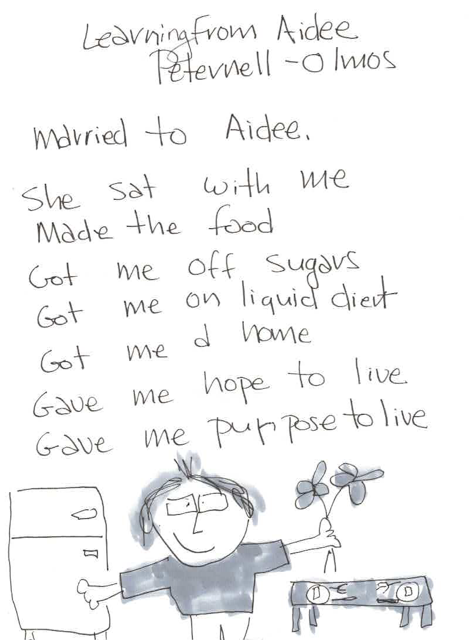 Learning from Aidee
Peternell-Olmos
Married to Aidee.
She sat with me
Made the food
Got me off sugars
Got me on liquid diert
Got me a home
Gave me hope to live
Gave me purpose to live